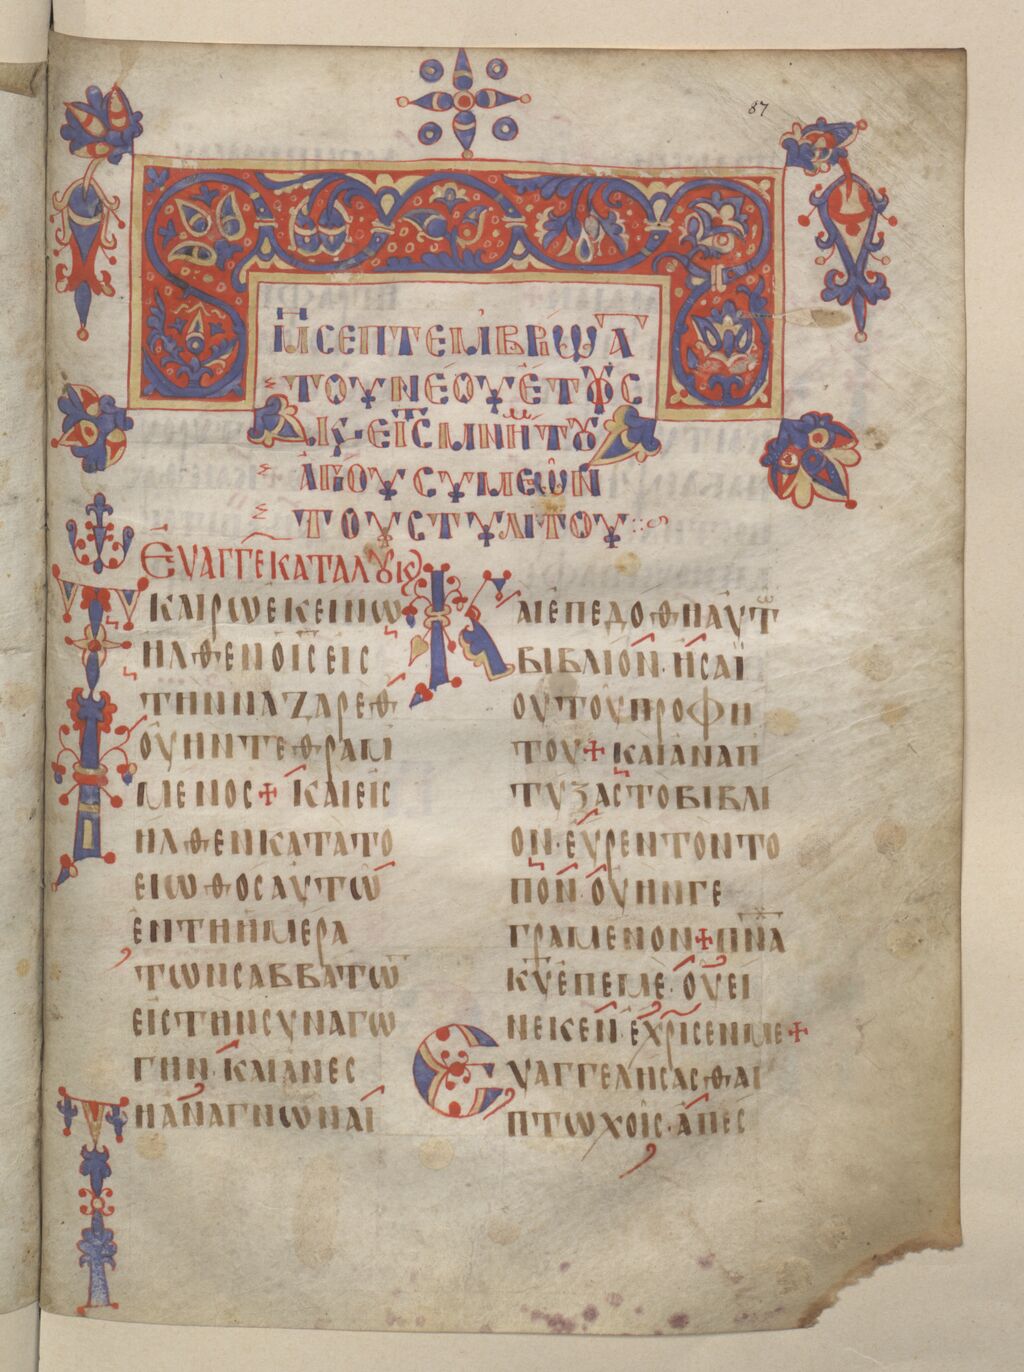 87
ΜΗ ΣΕΠΤΕΜΒΡΙΩ Α
ΤΟΥ ΝΕΟΥ ΕΤΟΥΣ
Κ, ΕΙΣ Τ ΜΝΗΜ ΤΟΥ
ΑΓΙΟΥ ΣΥΜΕΩΝ
ΤΟΥ ΣΤΥΛΙΤΟΥ
ΕΥΑΓΓΕ ΚΑΤΑ ΛΟΥΚ
Τ ΚΑΙΡΩ ΕΚΕΙΝΩ
ΗΛΘΕΝ Ο ΙΣ ΕΙΣ
ΤΗΝ ΝΑΖΑΡΕΘ
ΟΥ ΗΝ ΤΕΘΡΑΜ
ΜΕΝΟΣ + ΚΑΙ ΕΙΣ
ΗΛΘΕΝ ΚΑΤΑ ΤΟ
ΕΙΩΘΟΣ ΑΥΤΩ
ΕΝ ΤΗ ΗΜΕΡΑ
ΤΩΝ ΣΑΒΒΑΤΩ
ΕΙΣ ΤΗΝ ΣΥΝΑΓΩ
ΓΗΝ· ΚΑΙ ΑΝΕΣ
ΤΗ ΑΝΑΓΝΩΝΑΙ
ΚΑΙ ΕΠΕΔΟΘΗ ΑΥΤΩ
ΒΙΒΛΙΟΝ· ΗΣΑΪ
ΟΥ ΤΟΥ ΠΡΟΦΗ
ΤΟΥ + ΚΑΙ ΑΝΑΠ
ΤΥΞΑΣ ΤΟ ΒΙΒΛΙ
ΟΝ· ΕΥΡΕΝ ΤΟΝ ΤΟ
ΠΟΝ· ΟΥ ΗΝ ΓΕ
ΓΡΑΜΕΝΟΝ + ΠΝΑ
ΚΥ ΕΠ ΕΜΕ· ΟΥ ΕΙ
ΝΕΚΕΝ· ΕΧΡΙΣΕΝ ΜΕ +
ΕΥΑΓΓΕΛΗΣΑΣΘΑΙ
ΠΤΩΧΟΙΣ· ΑΠΕΣ